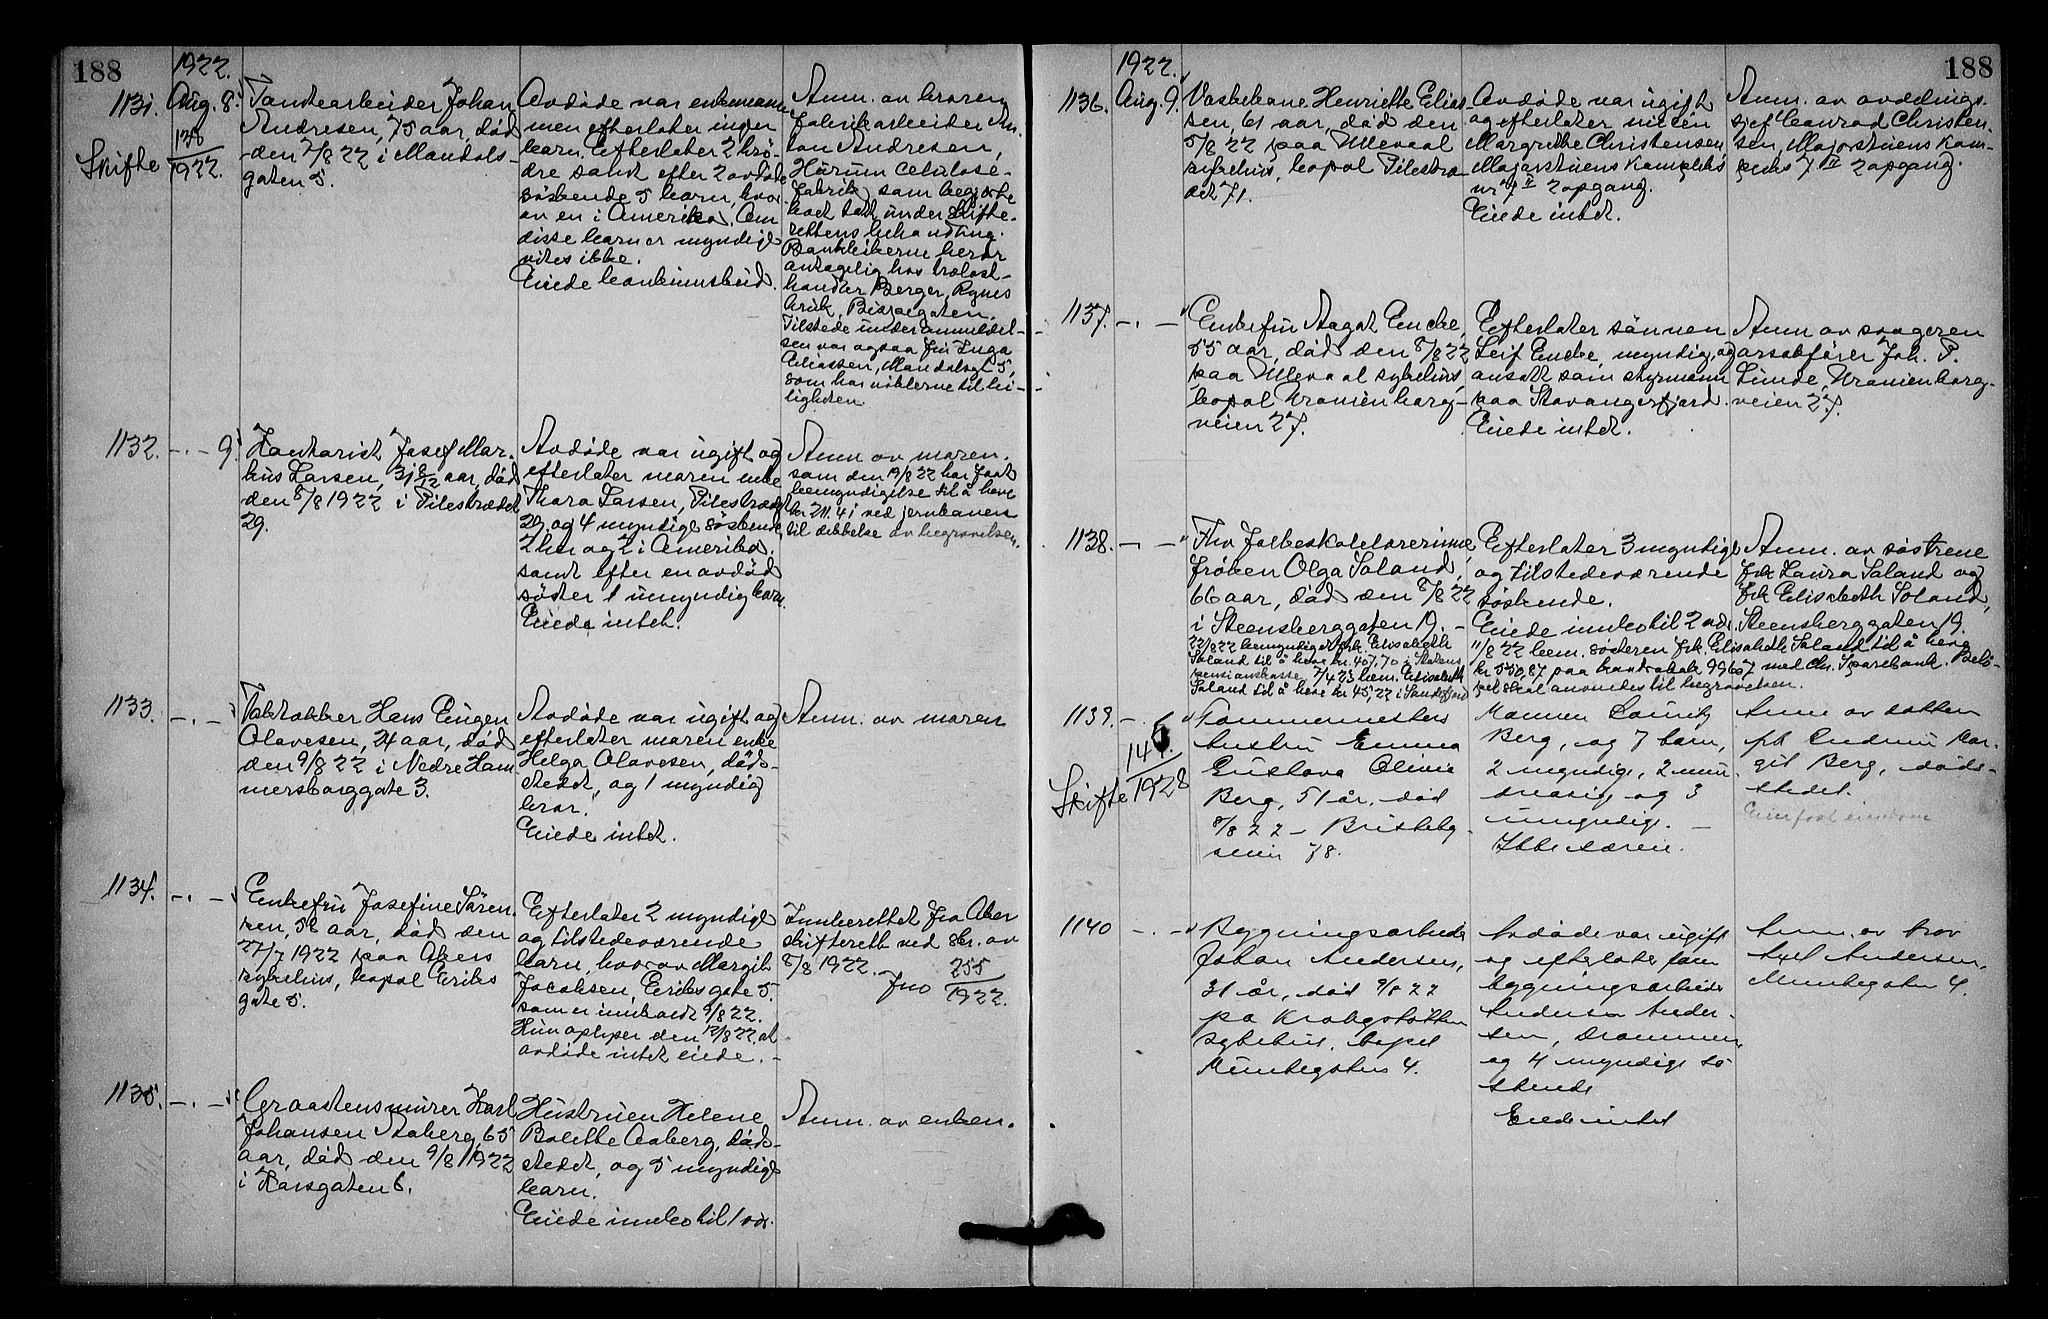 188
1922.
1131. Aug. 8.
138
1922.
Skifte
Tomtearbeider Johan
Andresen, 75 aar, död
den 7/8 22 i Mandals-
gaten 5.
Avdöde var enkemann
men efterlater ingen
barn. Efterlater 2 brö-
dre samt efter 2 avdöde
söskende 5 barn, hvor-
av en i Amerika. Om
disse barn er myndige
vites ikke.
Eiede bankinnskud.
Anm. av broren
fabrikarbeider An-
ton Andresen,
Hurum Celulose-
fabrik, som begjærte
boet tatt under skifte-
rettens behandling.
Bankbökerne beror
antagelig hos trælast-
handler Berger, Rynes
bruk, Bispegaten.
Tilstede under anmeldel-
sen var ogsaa fru Inga
Eliassen, Mandalsgt 5,
som har nöklerne til lei-
ligheten.
1132. -.- 9.
Kontorist Josef Mar-
hus Larsen, 31 8/12 aar, död
den 8/8 1922 i Pilestrædet
29.
Avdöde var ugift og
efterlater moren enke
Thora Larsen, Pilestrædet
29 og 4 myndige söskende
2 her og 2 i Amerika.
samt efter en avdöd
söster 1 umyndig barn.
Eiede intet.
Anm. av moren.
som den 19/8 22 har faat
bemyndigelse til å heve
kr 211.41 ved jernbanen
til dekkelse av begravelsen.
1133. -.-
Hans Eugen
Olavesen, 24 aar, död
den 9/8 22 i Nedre Ham
mersborggate 3.
Avdöde var ugift og
efterlater moren enke
Helga Olavesen, döds-
stedet, og 1 myndig
bror.
Eiede intet.
Anm. av moren
1134. -.-
Enkefru Josefine Sören-
sen, 58 aar, död den
27/7 1922 paa Akers
sykehus, bopal Eriks
gate 5.
Efterlater 2 myndige
og tilstedeværende
barn, hvorav Margit
Jacobsen, Eriksgate 5.
som er innkaldt 9/8 22.
Hun oplyser den 12/8 22, at
avdöde intet eiede. -
Innberettet fra Aker
skifterett ved skr. av
8/8 1922.
Jno 255
1922.
1135. -.-
Graastensmurer Karl
Johansen Aaberg, 65
aar, död den 9/8 1922
i Korsgaten 6.
Hustruen Helene
Bolette Aaberg, döds-
stedet, og 5 myndige
barn.
Eiede innbo til 1 vær.
Anm. av enken.
188
1922.
1136. Aug. 9.
Vaskekone Henriette Elias-
sen, 61 aar, död den
5/8 22 paa Ullevaal
sykehus, bopal Pilestræ
det 71.
Avdöde var ugift
og efterlater niecen
Margrethe Christensen
Majorstuens Kompleks
nr 7 II 2 opgang.
Eiede intet.
Anm. av avdelings-
sjef Conrad Christen-
sen, Majorstuens Kom-
pleks 7 II 2 opgang.
1137. -.-
Enkefru Aagot Encke,
55 aar, död den 8/8 22
paa Ullevaal sykehus,
bopal Uranienborg-
veien 27.
Efterlater sönnen
Leif Encke, myndig, og
ansatt som styrmann
paa Stavangerfjord.
Eiede intet.
Anm. av svogeren
oversakförer Joh. P.
Lunde, Uranienborg-
veien 27.
1138. -.-
Fhv. folkeskolelærerinne
fröken Olga Soland,
66 aar, död den 8/8 22
i Steensberggaten 19. -
22/8 22 bemyndiget frk. Elisabeth
Soland til å heve kr. 407,70 i Statens
pensjonskasse. 7/4 23 bem. Elisabeth
Soland til å heve kr 45,22 i Sandefjord
Efterlater 3 myndige
og tilstedeværende
söskende.
Eiede innbo til 2 vær.
11/8 22 bem. sösteren frk. Elisabeth Soland til å heve
kr 550,87 paa bankbok 99607 med Chr. Sparebank. Belö-
pet skal anvendes til begravelsen.
Anm. av söstrene
frk Laura Soland og
frk Elisabeth Soland,
Steensberggaten 19.
1139. -.-
146.
1928
Skifte
Tömmermesters
hustru Emma
Gustava Olivia
Berg, 51 år, död
8/8 22 -
78.
Mannen Lauritz
Berg, og 7 barn,
2 myndige, 2 min-
dreårig og 3
umyndige. -
Ikke særeie.
Anm. av datter
frk Gudrun Mar-
git Berg, döds-
stedet.
Eier fast eiendom
1140 -.-
Bygningsarbeider
Johan Andersen,
31 år, död 9/8 22
på Krohgstötten
sykehus, bopel
Munkegaten 4.
Avdöde var ugift
og efterlater faren
bygningsarbeider
Anderson Ander-
sen, Drammen,
og 4 myndige sö-
skende
Eiede intet
Anm. av bror
Axel Andersen,
Munkegaten 4.